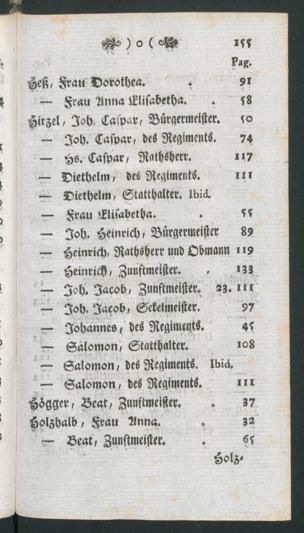 ) o (
155
Pag.
Heß, Frau Dorothea. . 91
— Frau Anna Elisabetha. . 58
Hirzel, Joh. Caspar, Bürgermeister. 50
— Joh. Caspar, des Regiments. 74
— Hs. Caspar, Rathsherr. 117
— Diethelm, des Regiments. 111
— Diethelm, Statthalter. Ibid.
— Frau Elisabetha. . 55
— Joh. Heinrich, Bürgermeister 89
— Heinrich, Rathsherr und Obmann 119
— Heinrich, Zunftmeister. . 133
— Joh. Jacob, Zunftmeister. 23. 111
— Joh. Jacob, Sekelmeister. 97
— Johannes, des Regiments. 45
— Salomon, Statthalter. 108
— Salomon, des Regiments. Ibid.
— Salomon, des Regiments. 111
Högger, Beat, Zunftmeister. . 37
Holzhalb, Frau Anna. . 32
— Beat, Zunftmeister. . 65
Holz-